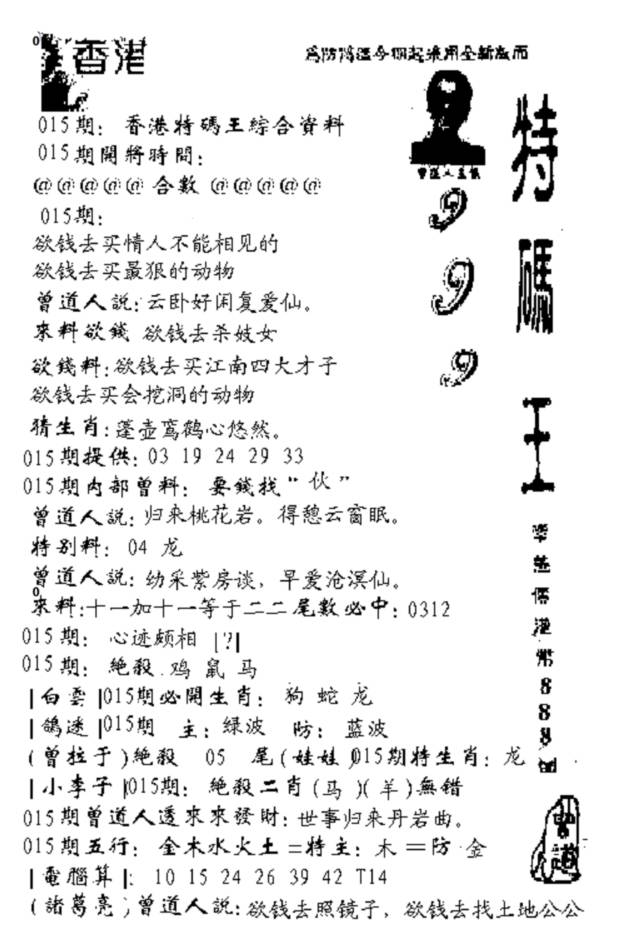 香港
為防偽温今期起采用全新版面
015期：香港特碼王綜合資料
015期開將時間：
@@@@@合數@@@@@
015期：
欲钱去买情人不能相见的
欲钱去买最狠的动物
曾道人説：云卧好闲复爱仙。
來料欲錢 欲钱去杀妓女
欲錢料：欲钱去买江南四大才子
欲钱去买会挖洞的动物
猜生肖：蓬壶鸾鹤心悠然。
015期提供：03 19 24 29 33
015期内部曾料：要錢找"伙"
曾道人説：归来桃花岩。得憩云窗眠。
特别料：04 龙
曾道人説：幼采紫房谈，早爱沧溟仙。
來料：十一加十一等于二二尾數必中：0312
015期：心迹颇相|?|
015期：絶殺 鸡 鼠 马
|白雲|015期必開生肖：狗 蛇 龙
|鴿迷|015期 主：绿波 防：蓝波
(曾拉于)絶殺 05 尾(娃娃)015期特生肖：龙
|小李子|015期：絶殺二肖(马)(羊)無错
015期曾道人透來來發財：世事归来丹岩曲。
015期五行：金木水火土=特主：木=防·金
|電腦算|：10 15 24 26 39 42 T14
(諸葛亮)曾道人説：欲钱去照镜子，欲钱去找土地公公
9
9
9
特碼王
港幣888
曾道